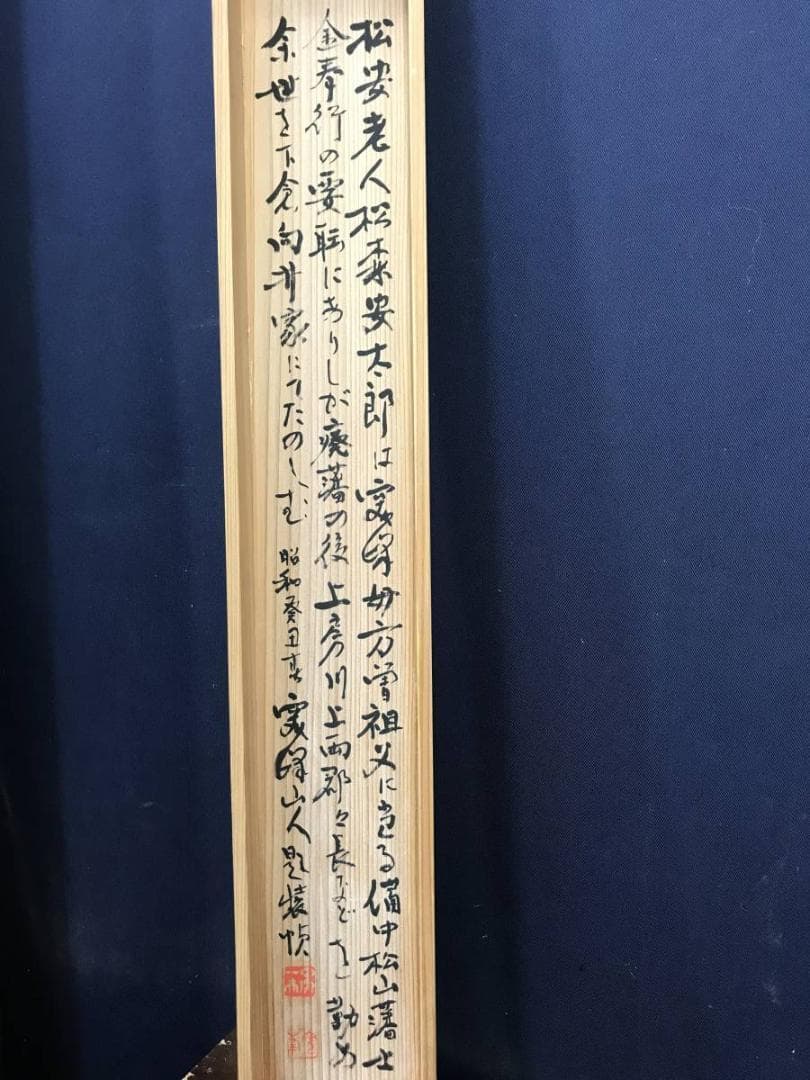 松安老人松森安太郎は寒峰母方曽祖父に当る備中松山藩士
金奉行の要転にありしが廃藩の後上房川上両郡々長などを勤め
余世を下倉向井家にてたのしむ 昭和癸丑春 寒峰山人題装幀